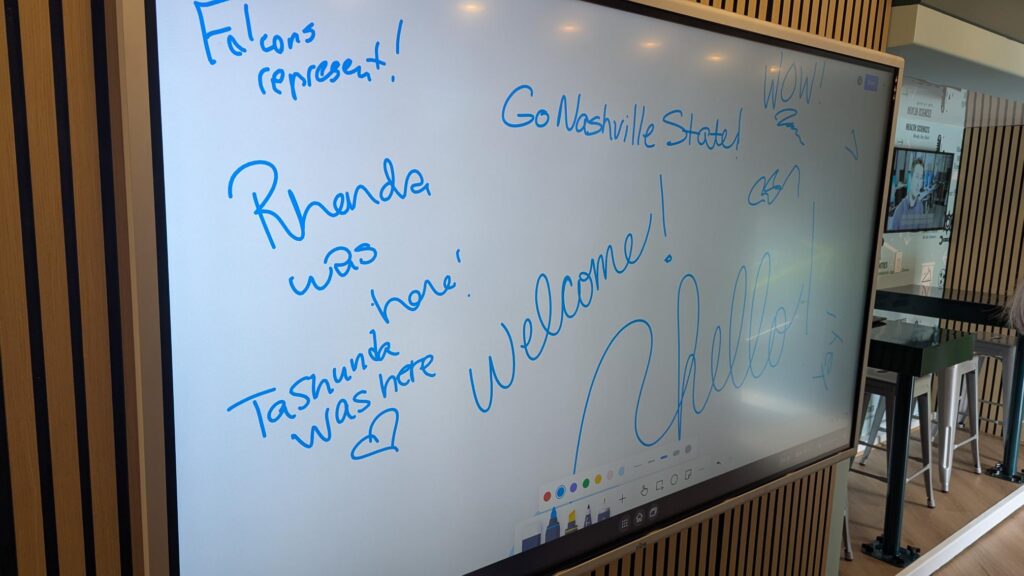 Falcons
represent!
Go Nashville State!
WOW!
Rhonda
was
here!
Welcome!
Hello!
Tashunda
was here
HEALTH SCIENCES